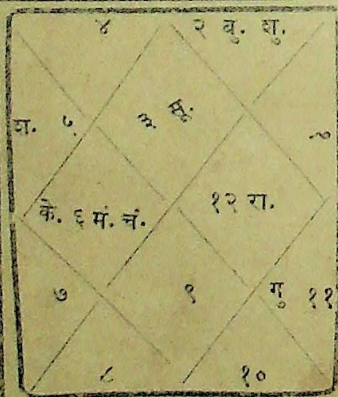 ४ २ बु. शु.
श. ५ ३ सू. १
के. ६ मं. चं. १२ रा.
७ ९ गु ११
८ १०